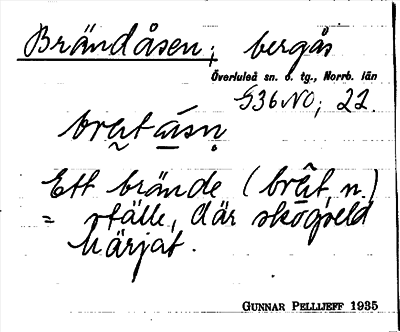 Brändåsen; bergås
Överluleå sn. o. tg., Norrb. län
G36NO; 22.
Ett brände (
= ställe, där skogseld
härjat.
GUNNAR PELLIJEFF 1935